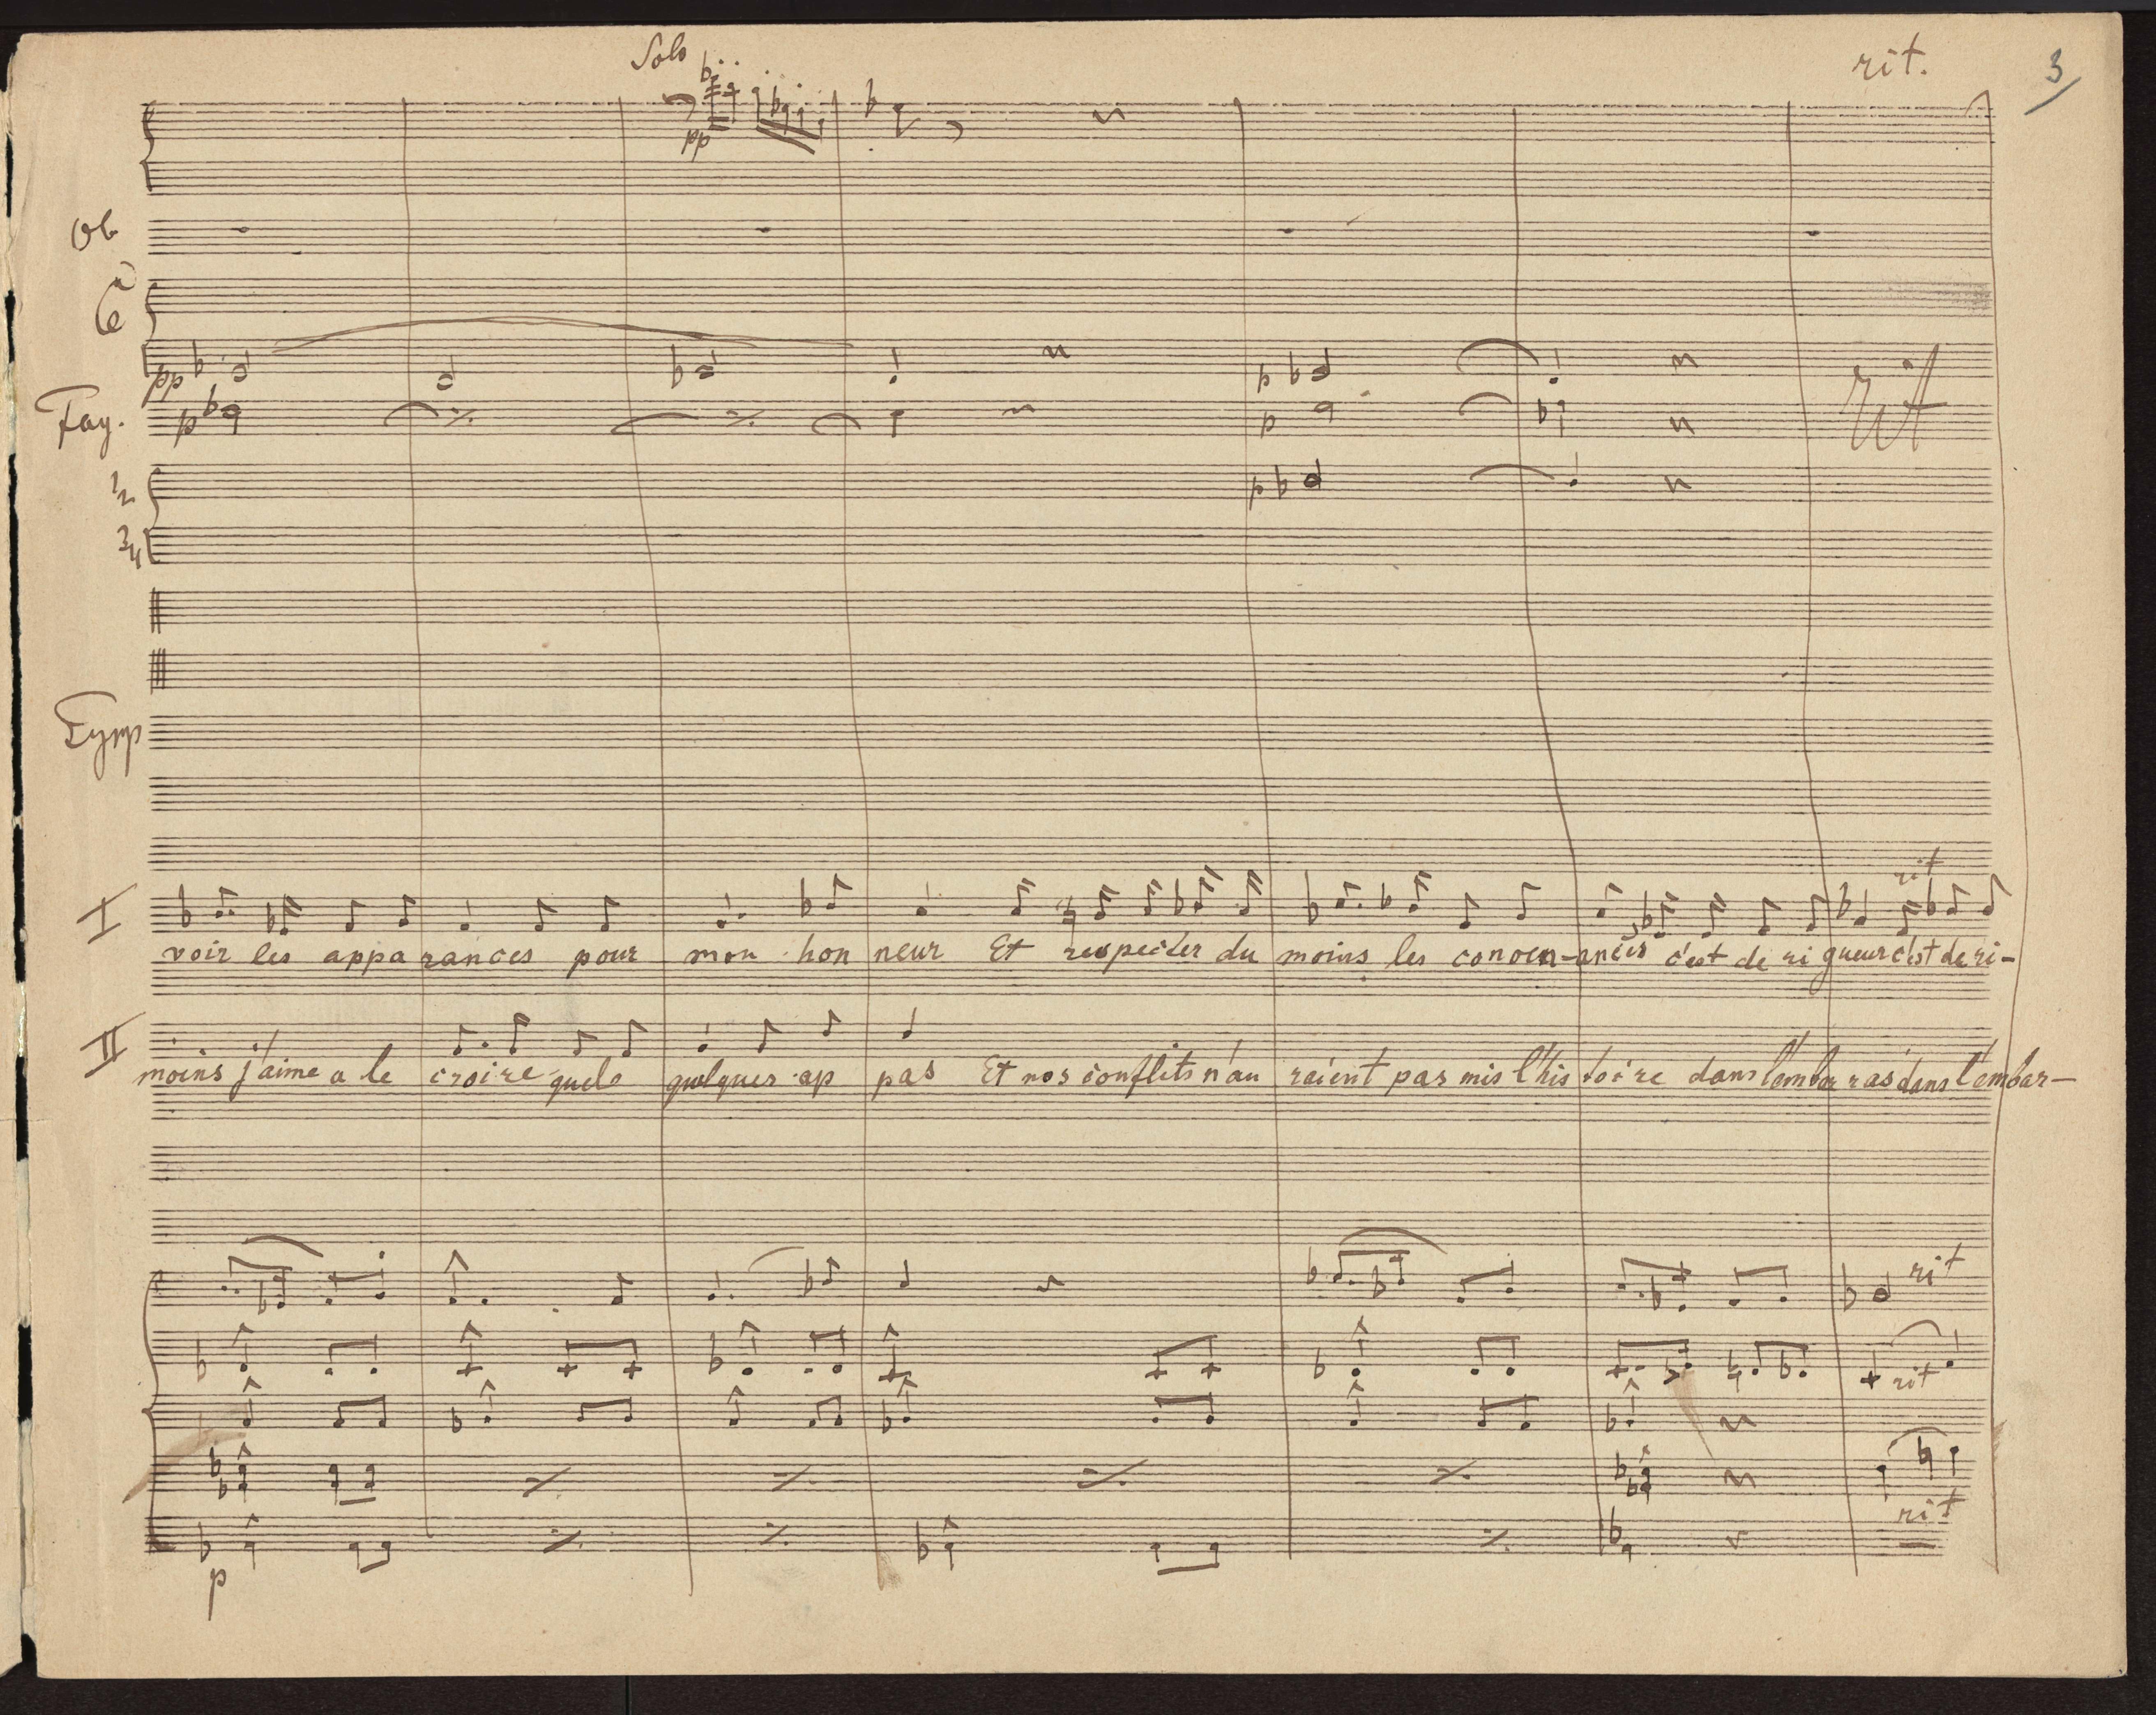 Solo
rit.
3
pp
Ob
pp
Fag.
p
p
p
rit
1/2
p
3/4
Tymp
rit
I
voir les appa rances pour mon hon neur Et respecter du moins les conven-ances c'est de ri gueur c'est de ri-
II
moins j'aime a le croire quels quelques ap pas Et nos conflits n'au raient pas mis l'his toire dans l'embar ras dans l'embar-
rit
rit
rit
p